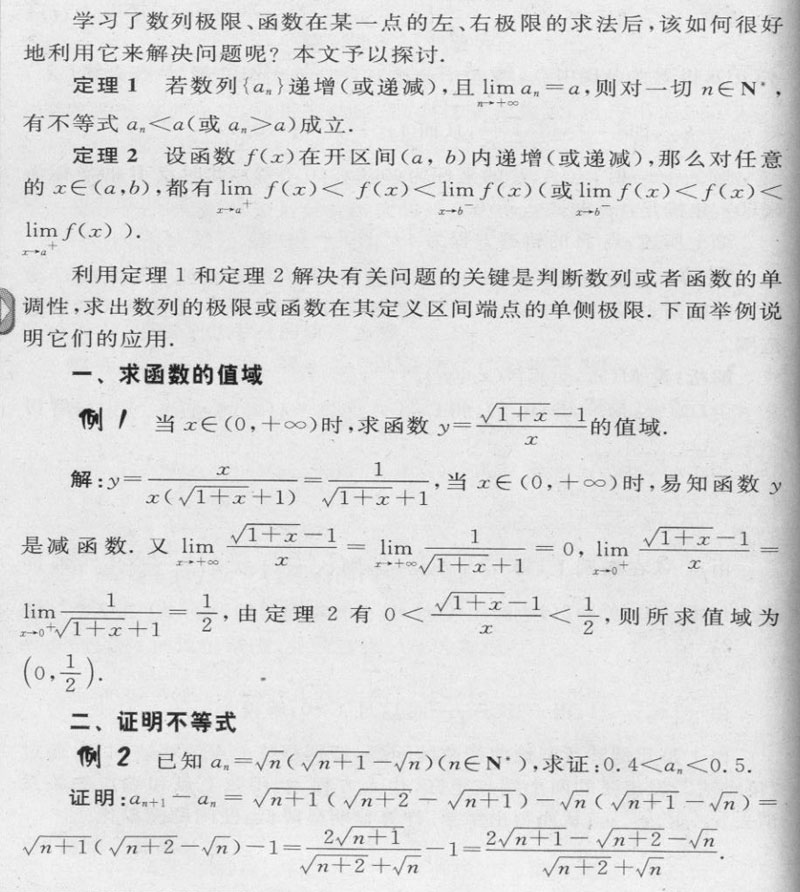 学习了数列极限、函数在某一点的左、右极限的求法后,该如何很好
地利用它来解决问题呢? 本文予以探讨.
定理 1 若数列{aₙ}递增(或递减),且 lim_{n→+∞} aₙ=a,则对一切 n∈N*,
有不等式 aₙ<a(或 aₙ>a)成立.
定理 2 设函数 f(x)在开区间(a, b)内递增(或递减),那么对任意
的 x∈(a,b),都有 lim_{x→a⁺} f(x)< f(x)<lim_{x→b⁻} f(x)(或 lim_{x→b⁻} f(x)<f(x)<
lim_{x→a⁺} f(x) ).
利用定理 1 和定理 2 解决有关问题的关键是判断数列或者函数的单
调性,求出数列的极限或函数在其定义区间端点的单侧极限. 下面举例说
明它们的应用.
一、求函数的值域
例 1 当 x∈(0,+∞)时,求函数 y=(√(1+x)-1)/x 的值域.
解:y=x/(x(√(1+x)+1))=1/(√(1+x)+1),当 x∈(0,+∞)时,易知函数 y
是减函数. 又 lim_{x→+∞} (√(1+x)-1)/x = lim_{x→+∞} 1/(√(1+x)+1) = 0, lim_{x→0⁺} (√(1+x)-1)/x =
lim_{x→0⁺} 1/(√(1+x)+1) = 1/2,由定理 2 有 0<(√(1+x)-1)/x<1/2,则所求值域为
(0,1/2).
二、证明不等式
例 2 已知 aₙ=√n(√(n+1)-√n)(n∈N*),求证:0.4<aₙ<0.5.
证明:aₙ₊₁-aₙ=√(n+1)(√(n+2)-√(n+1))-√n(√(n+1)-√n)=
√(n+1)(√(n+2)-√n)-1=2√(n+1)/(√(n+2)+√n)-1=(2√(n+1)-√(n+2)-√n)/(√(n+2)+√n).